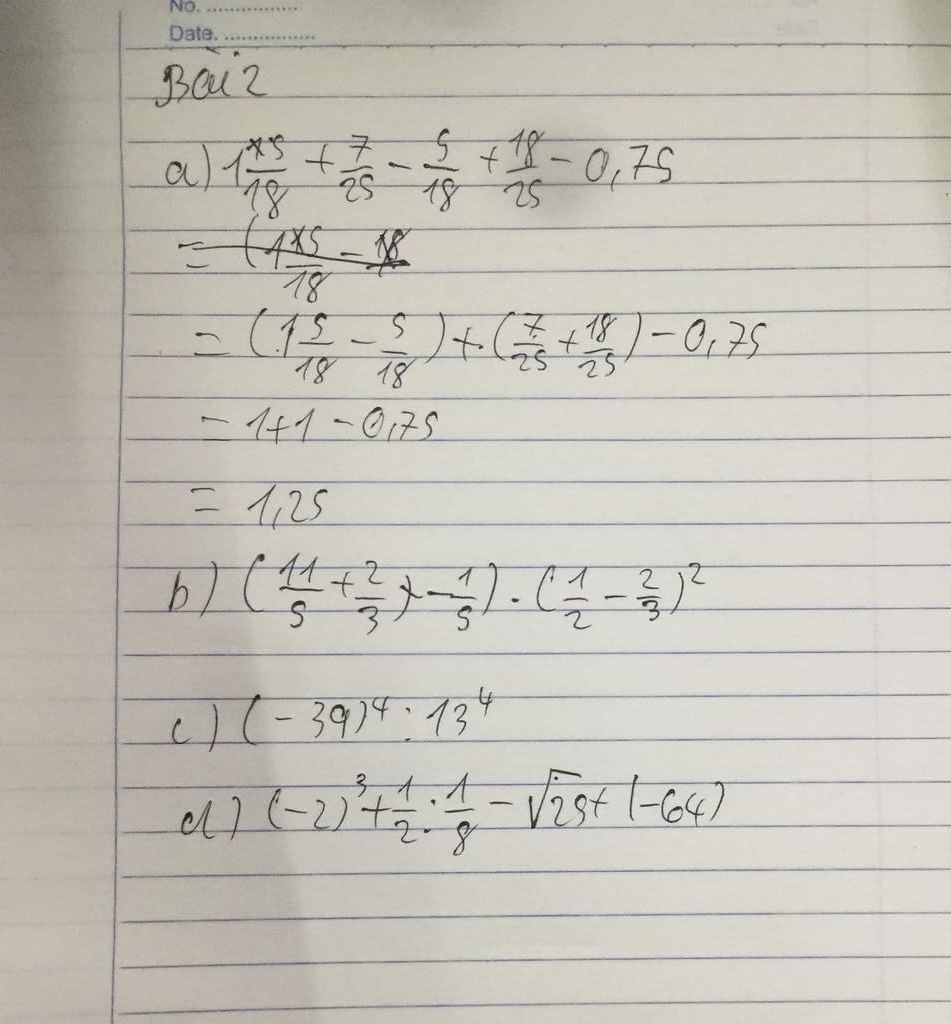 No. ................
Date. ................
Bài 2
a) 1 5/18 + 7/25 - 5/18 + 18/25 - 0,75
= (1 5/18 - 18
= (1 5/18 - 5/18) + (7/25 + 18/25) - 0,75
= 1+1 - 0,75
= 1,25
b) (11/5 + 2/3 - 1/5) . (1/2 - 2/3)²
c) (-39)⁴ : 13⁴
d) (-2)³ + 1/2 : 1/8 - √25 + |-64)